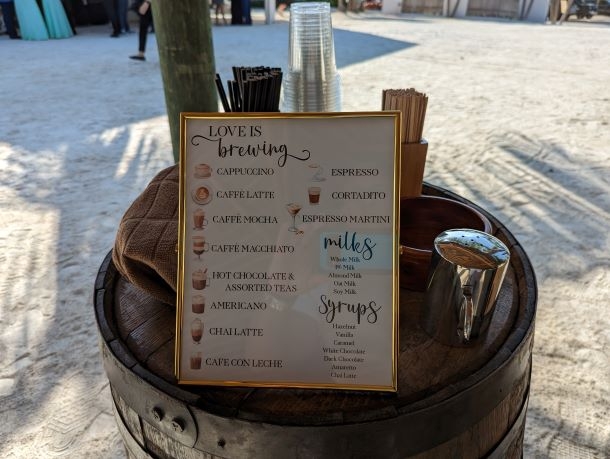 LOVE IS
brewing
CAPPUCCINO
CAFFÈ LATTE
CAFFÈ MOCHA
CAFFÈ MACCHIATO
HOT CHOCOLATE &
ASSORTED TEAS
AMERICANO
CHAI LATTE
CAFE CON LECHE
ESPRESSO
CORTADITO
ESPRESSO MARTINI
milks
Whole Milk
1% Milk
Almond Milk
Oat Milk
Soy Milk
syrups
Hazelnut
Vanilla
Caramel
White Chocolate
Dark Chocolate
Amaretto
Chai Latte